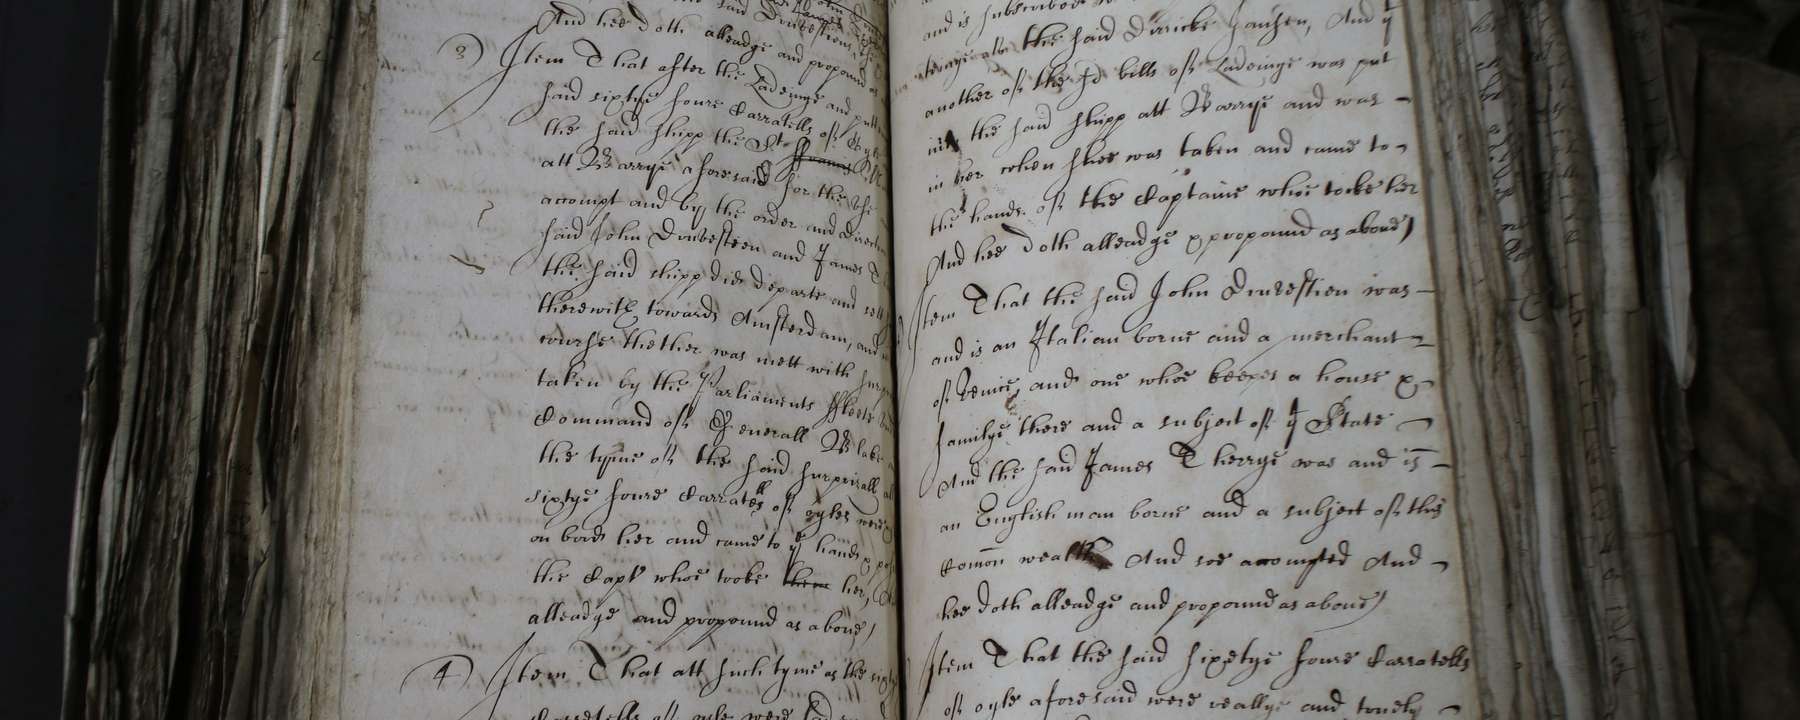 said Drivestein
And hee doth alleadge and propound as
3) Item That after the Ladeinge and putt
said sixtye foure Carratells of Oyle
the said shipp the St. ffrancis
att Warrye aforesaid for the
accompt and by the order and direct
said John Drivestien and James Th
the said shipp did departe and sett
therewith towards Amsterdam, and
course thether was mett with
taken by the Parliaments ffleete
Command of Generall Blake
the tyme of the said surprizall all
sixtye foure Carratells of oyles were
on bord her and came to ye hands
the Capt whoe tooke them her,
alleadge and propound as above)
4) Item That att such tyme as the
Carratells of oyle were lad
and is subscribed
the said Diricke Jansen, And ye
another of the sd bills of Ladeinge was put
in the said shipp att Warrye and was
in her when shee was taken and came to
the hands of the Captaine whoe tooke her
And hee doth alleadge & propound as above)
Item That the said John Drivestien was
and is an Italian borne and a merchant
of Venice, and one whoe keepes a house &
familye there and a subject of ye State
And the said James Therrye was and is
an Englishman borne and a subject of this
Comon wealth And soe accompted And
hee doth alleadge and propound as above)
Item That the said sixetye foure Carratells
of oyle aforesaid were really and